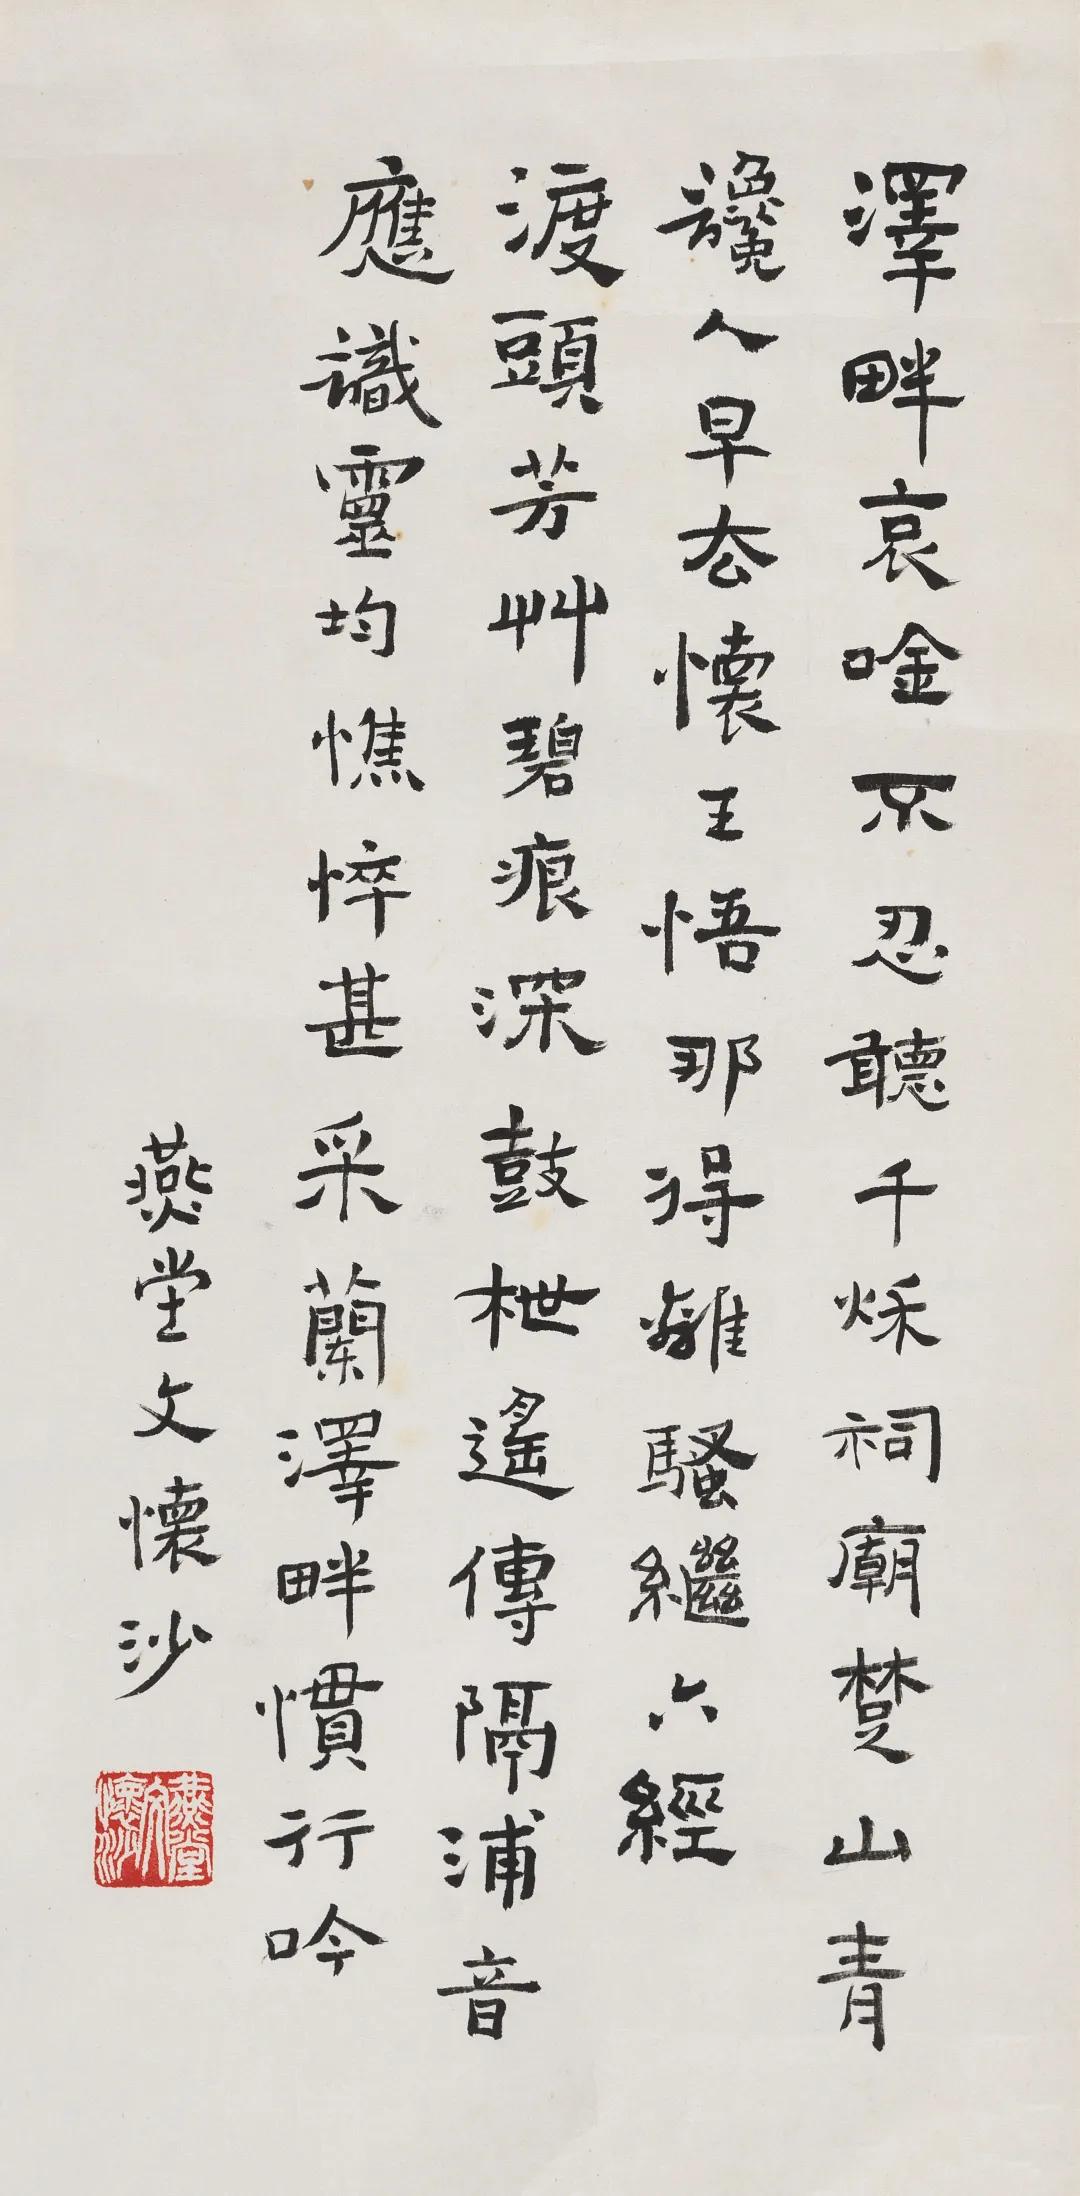 澤畔哀唫不忍聽千秌祠廟楚山青
讒人早厺懷王悟那得離騷繼六經
渡頭芳艸碧痕深鼓枻遙傳隔浦音
應識靈均憔悴甚采蘭澤畔慣行吟
燕堂文懷沙
燕堂文懷沙